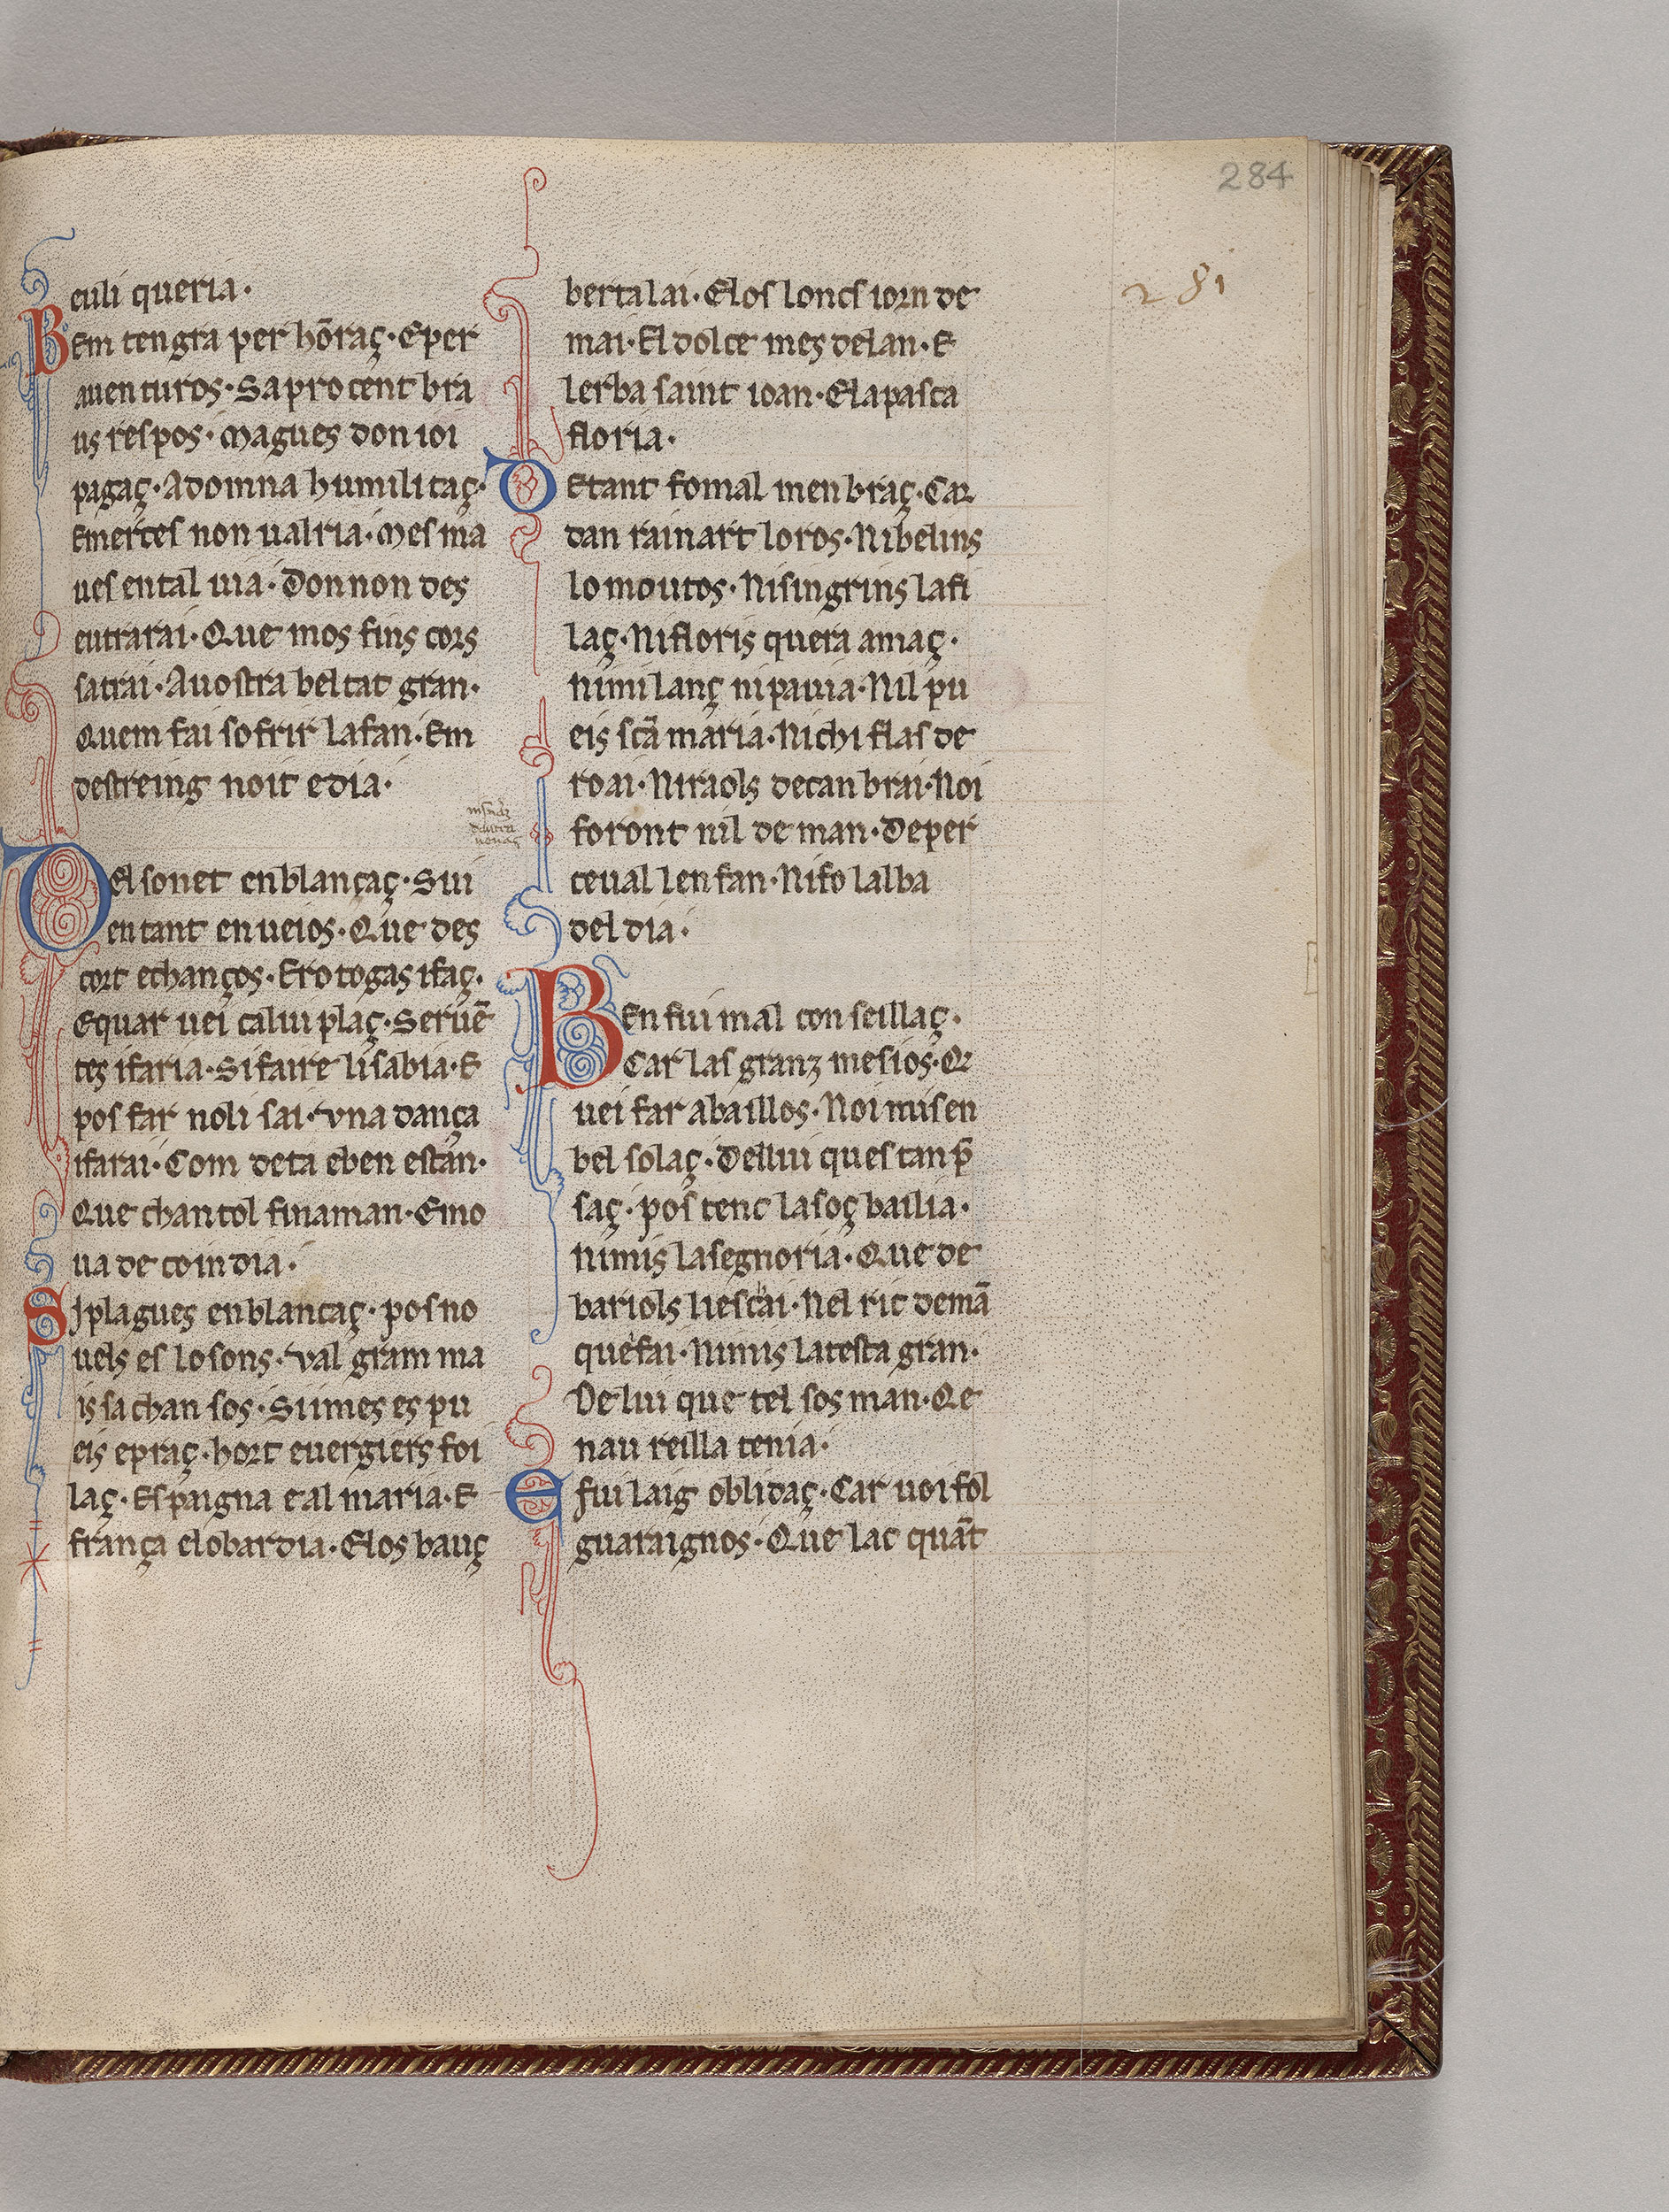 284
281
euli queria·
Bem tengra per hōraç·Eper
auenturos·Saprotent bra
us respos·Magues don ioi
pagaç·Adomna humilitaç·
Emerces non ualria·Mes ma
ues ental uia·Donnon des
entrarai·Que mos fins cors
satrai·Auostra beltat gran·
Quem fai sofrir lafan·Em
destreing noit edia·
Del sonet enblançaç·Sui
en tant enueios·Que des
cort echanços·Erotogas ifaç·
Equar uei caluiplaç·Seruē
tes ifaria·Sifaire lisabia·E
pos far noli sai·Vna dança
ifarai·Com deta eben estan·
Que chantol finaman·Emo
ua de coindia·
Siplagues enblancaç·posno
uels es losons·Val gramma
is sa chan sos·Simes es pu
eis epraç·hort euergiers foi
laç·Espaigna eal maria·E
frança elobardia·Elos bauç
bertalai·Elos loncs iorn de
mai·El dolce mes delan·E
lerba saint ioan·Elapasca
floria·
Detant fomal menbraç·Car
dan rainart loros·Nibelins
lomoutos·Nisingrins lafi
laç·Nifloris quera amaç·
Nimilanç nipauia·Nil pu
eis scā maria·Nichi flas de
roai·Niraols decanbrai·Noi
foront nil de man·Deper
ceual lenfan·Nifo lalba
del dia·
Ben fui mal conseillaç·
Car las granz mesios·Q
uei far abaillos·Noi misen
bel solaç·Dellui ques tanp̄
saç·pos tenc lasoç bailia·
Nimis lasegnoria·Que de
bariols liescai·Nel ric demā
quefai·Nimis latesta gran·
De lui que tel sos man·Qe
nau reilla tenia·
E fui laig oblidaç·Car uoi fol
guaraignos·Que lac quāt